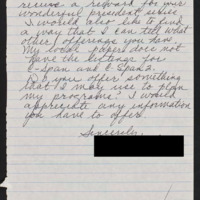 receive a reward for your
wonderful president series.
I would also like to find
a way that I can tell what
other offerings you have.
My local papers does not
have the listings for
C-Span and C-Span 2.
Do you offer something
that I may use to plan
my programs? I would
appreciate any information
you have to offer.
Sincerely,